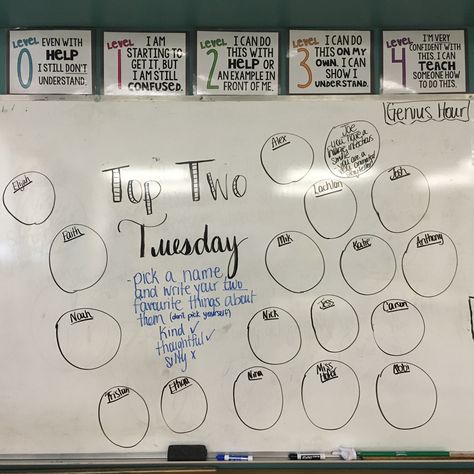 LEVEL 0
EVEN WITH
HELP
I STILL DON'T
UNDERSTAND.
LEVEL 1
I AM
STARTING TO
GET IT, BUT
I AM STILL
CONFUSED.
LEVEL 2
I CAN DO
THIS WITH
HELP OR
AN EXAMPLE IN
FRONT OF ME.
LEVEL 3
I CAN DO
THIS ON MY
OWN. I CAN
SHOW I
UNDERSTAND.
LEVEL 4
I'M VERY
CONFIDENT WITH
THIS. I CAN
TEACH
SOMEONE HOW
TO DO THIS.
Genius Hour
Top Two
Tuesday
- pick a name
and write your two
favourite things about
them (don't pick yourself)
Kind ✓
thoughtful ✓
silly x
Elijah
Faith
Noah
Tristan
Ethan
Alex
Joe
you have a
smile
Lachlan
Josh
Mik
Katie
Anthony
Nick
Jess
Carson
Nina
Miss
Mobi